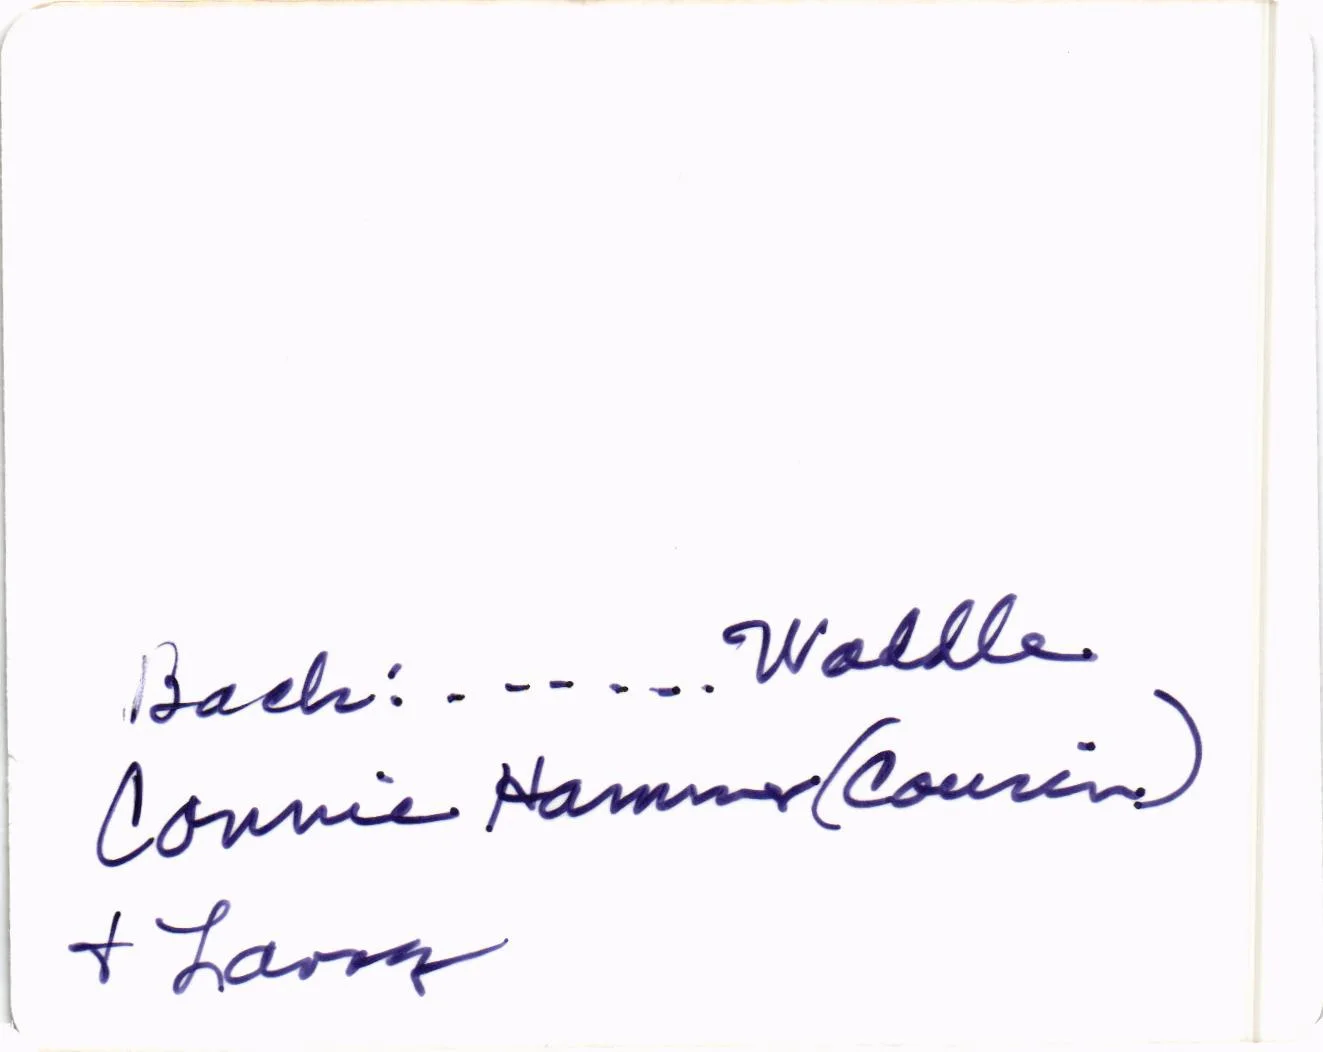 Back: . - - . - . Waddle
Connie Hammer (Cousin)
+ Larry